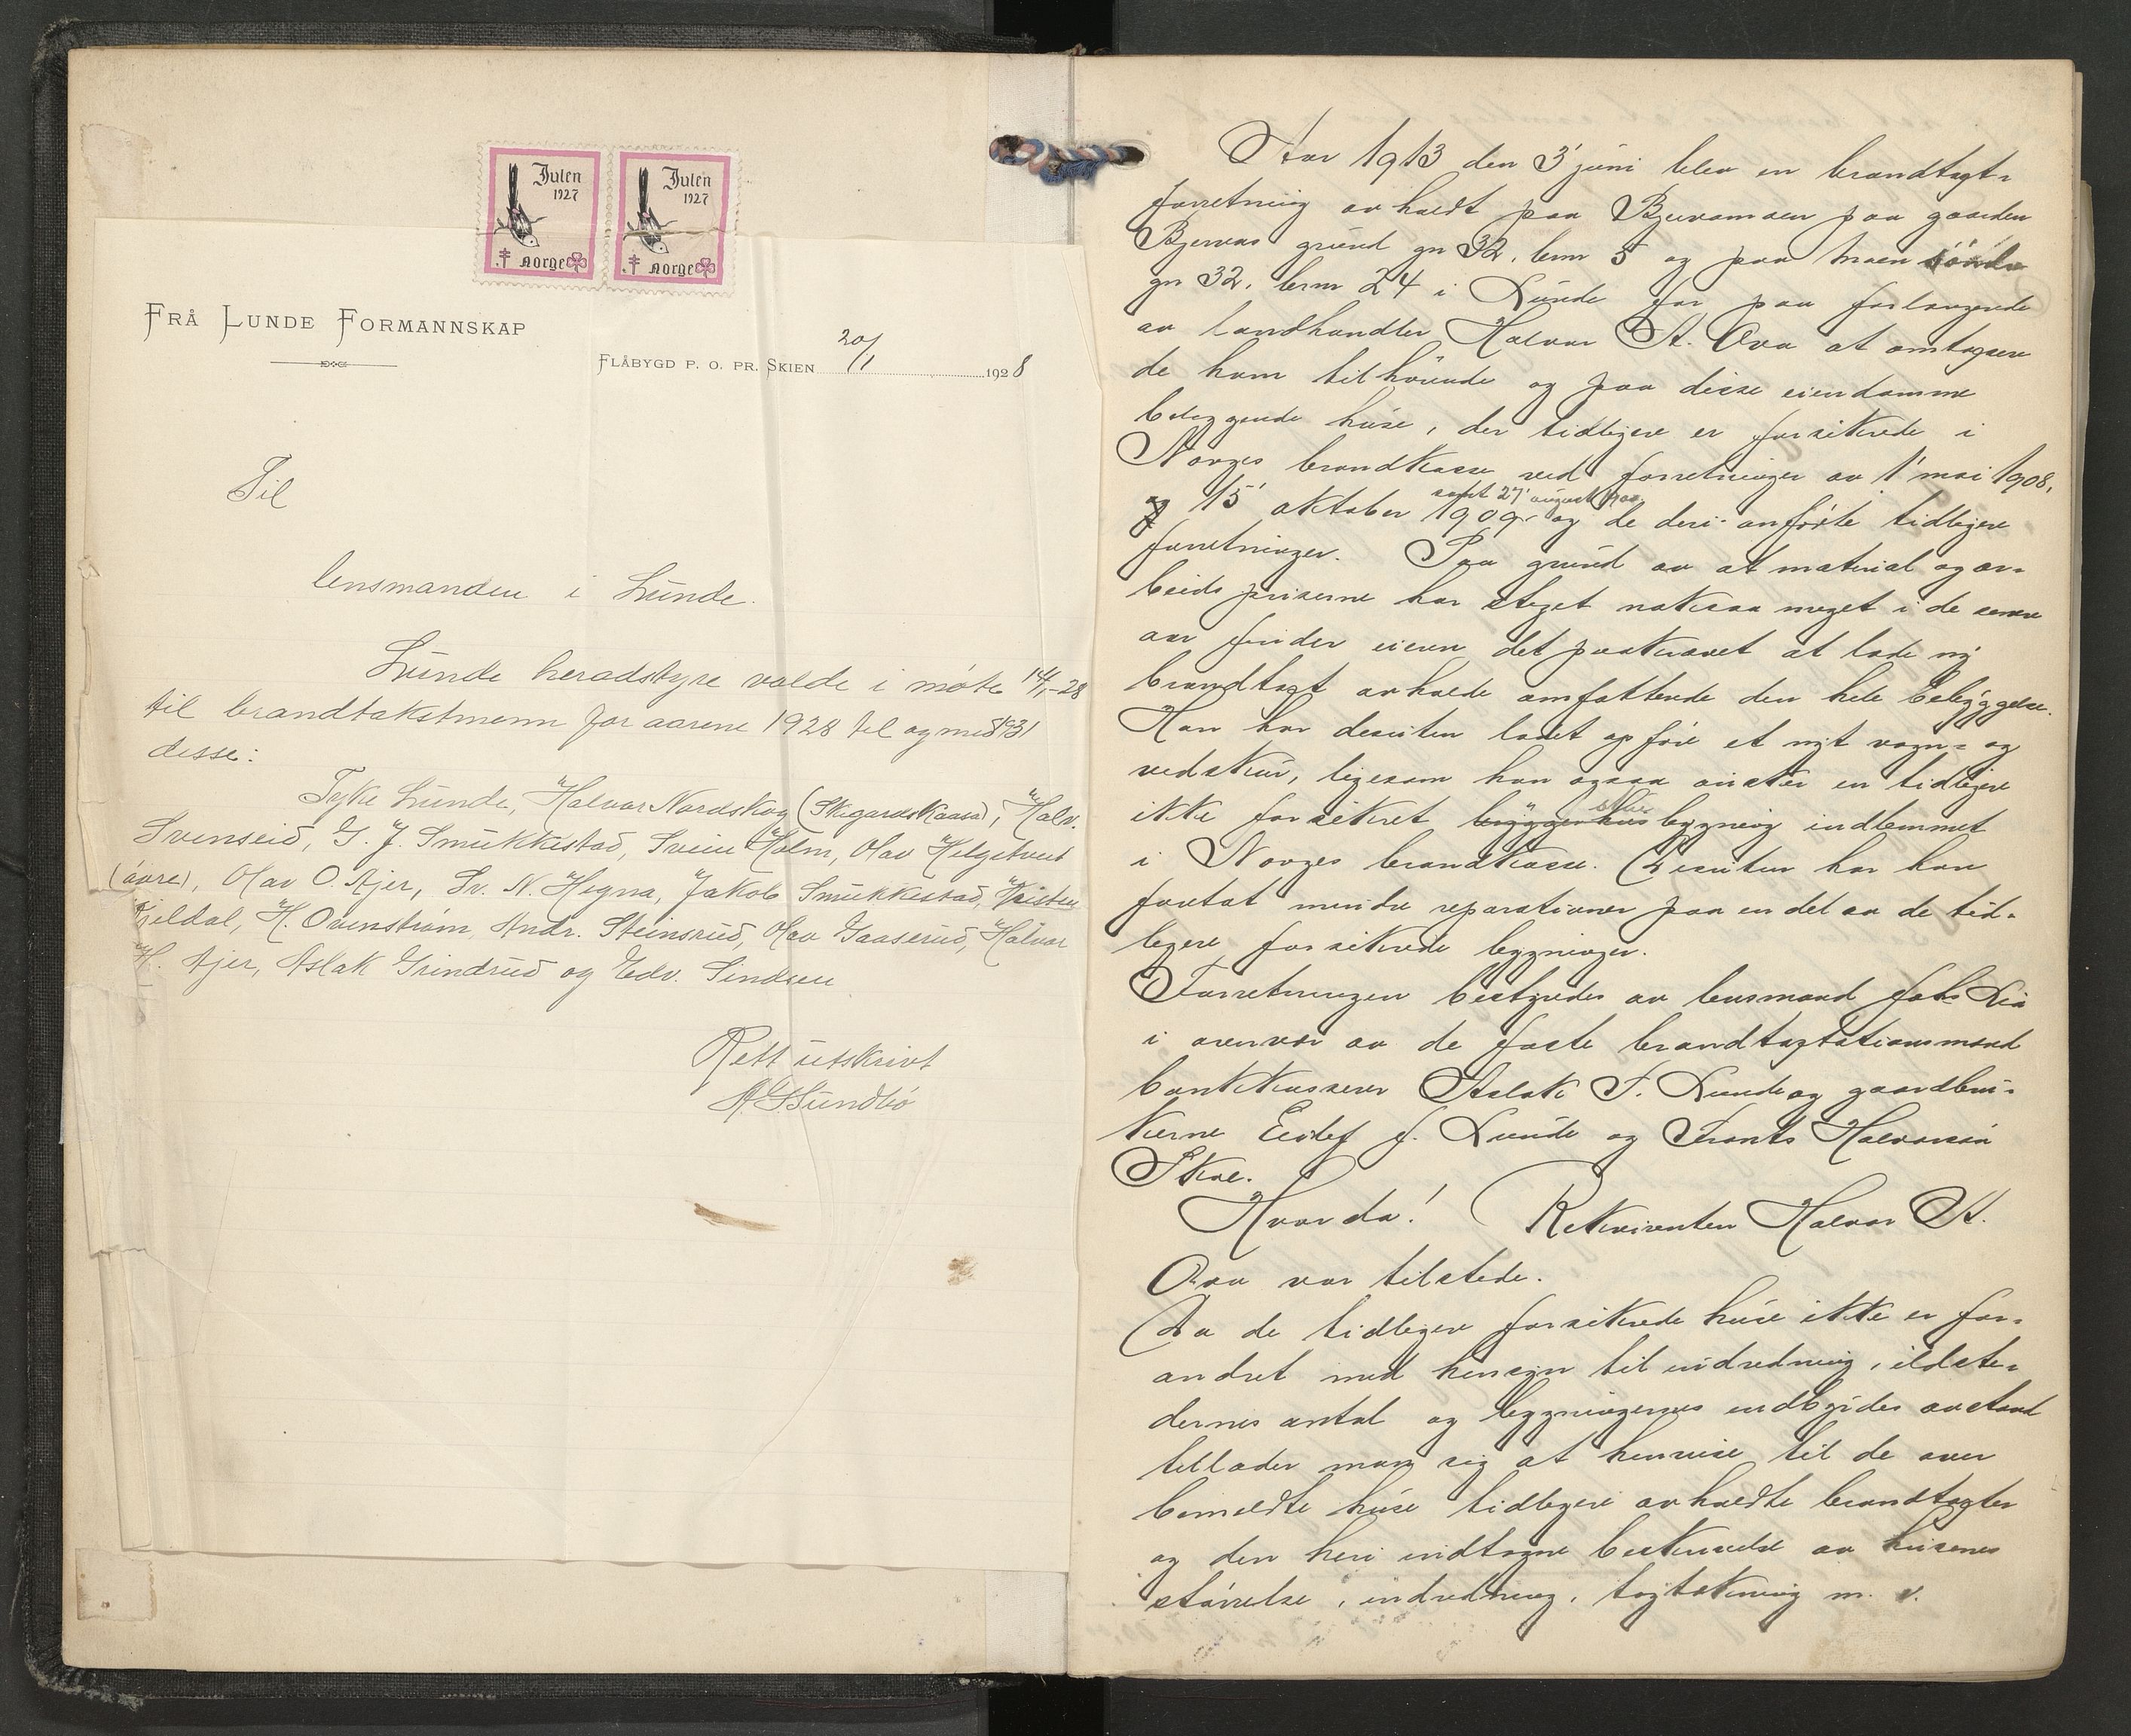 Julen
1927
Norge
Julen
1927
Norge
Frå Lunde Formannskap
Flåbygd P. O. pr. Skien 20/1 1928
Til
lensmanden i Lunde.
Lunde heradstyre valde i møte 14/1-28
til brandtakstmenn for aarene 1928 til og med 1931
disse:
Tyke Lunde, Halvor Nordskog (Skigardskaasa), Halv.
Svenseid, G. J. Smukkestad, Svein Holm, Olav Helgetveit
(øvre), Olav O. Ajer, Sv. N. Hegna, Jakob Smukkestad, Kristen
Kjeldal, H. Ovenstrøm, Andr. Steinsrud, Olav Gaaserud, Halvor
H. Ajer, Aslak Grindrud og Edv. Sindsen
Rett utskrivt
Sundbø
Aar 1913 den 3' juni blev en brandtagt-
forretning avholdt paa Bjervamoen paa gaarden
Bjervas grund gn 32, brn 5 og paa Moen söndre
gn 32. brn 24 i Lunde for paa forlangende
av landhandler Halvor A. Ova at omtagsere
de ham tilhörende og paa disse eiendomme
beliggende huse, der tidligere er forsikrede i
Norges brandkasse ved forretninger av 1' mai 1908,
samt 27' august 1900
og 15' oktober 1909- og de deri anförte tidligere
forretninger. Paa grund av at material og ar-
beidspriserne har steget noksaa meget i de senere
aar finder eieren det paakrævet at lade ny
brandtagt avholde omfattende den hele bebyggelse.
Han har desuten ladet opföre et nyt vogn- og
vedskur, ligesom han ogsaa önsker en tidligere
ikke forsikret bryggerhus bygning indlemmet
i Norges brandkasse. Desuten har han
foretat mindre reparationer paa en del av de tid-
ligere forsikrede bygninger.
Forretningen bestyredes av lensmand Johs Lia
i overvær av de faste brandtagtationsmænd
bankkasserer Aslak T. Lunde og gaardbru-
kerne Eilef J. Lunde og Frants Halvorsön
Skoe.
Hvorda! Rekvirenten Halvor A.
Ova var tilstede.
Da de tidligere forsikrede huse ikke er for-
andret med hensyn til indredning, ildste-
dernes antal og bygningernes indbyrdes avstand
tillader man sig at henvise til de over
bemeldte huse tidligere avholdte brandtagter
og den heri indtagne beskrivelse av husenes
störrelse, indredning, tagtækning m. v.